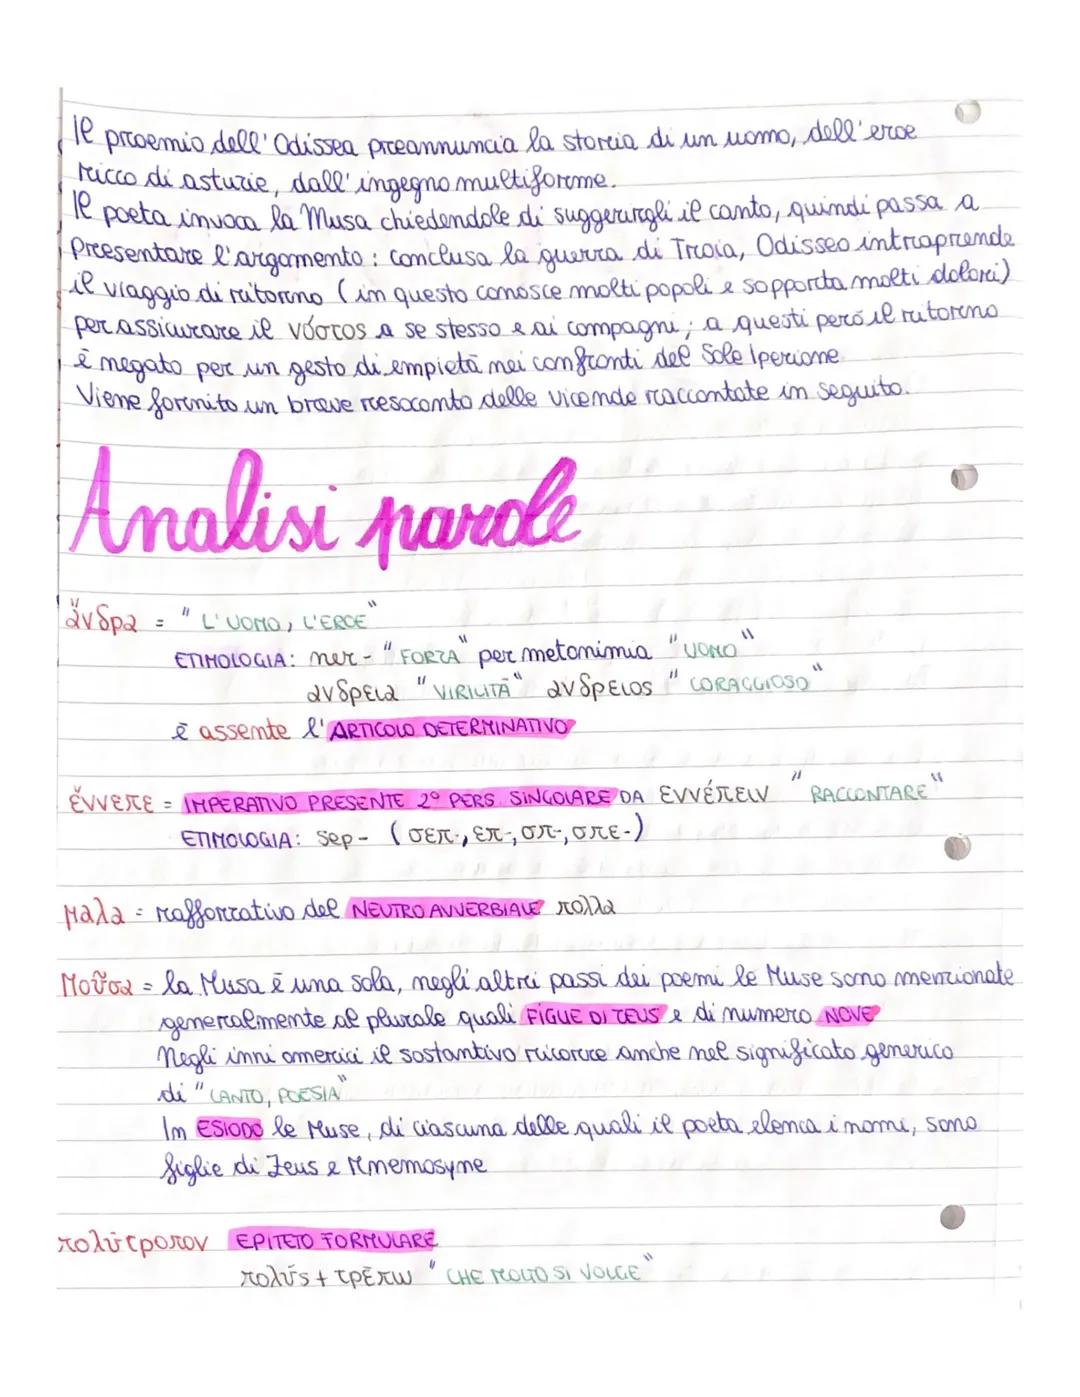 Il proemio dell'Odissea preannuncia la storia di un uomo, dell'eroe
ricco di astuzie, dall'ingegno multiforme.
Il poeta invoca la Musa chiedendole di suggerirgli il canto, quindi passa a
presentare l'argomento: conclusa la guerra di Troia, Odisseo intraprende
il viaggio di ritorno (in questo conosce molti popoli e sopporta molti dolori)
per assicurare il νόστος a se stesso e ai compagni; a questi però il ritorno
è negato per un gesto di empietà nei confronti del Sole Iperione
Viene fornito un breve resoconto delle vicende raccontate in seguito.
Analisi parole
ἄνδρα = "L'UOMO, L'EROE"
ETIMOLOGIA: ner- "FORZA" per metonimia "UOMO"
ανδρεια "VIRILITÀ" ανδρειος "CORAGGIOSO"
è assente l'ARTICOLO DETERMINATIVO
ἔννεπε = IMPERATIVO PRESENTE 2° PERS. SINGOLARE DA εννέπειν "RACCONTARE"
ETIMOLOGIA: sep- (σεπ-, επ-, σπ-, σπε-)
μαλα = rafforzativo del NEUTRO AVVERBIALE πολλα
Μοῦσα = la Musa è una sola, negli altri passi dei poemi le Muse sono menzionate
generalmente al plurale quali FIGLIE DI ZEUS e di numero NOVE
Negli inni omerici il sostantivo ricorre anche nel significato generico
di "CANTO, POESIA"
In ESIODO le Muse, di ciascuna delle quali il poeta elenca i nomi, sono
figlie di Zeus e Mnemosyne
πολύτροπον EPITETO FORMULARE
πολύς + τρέπω "CHE MOLTO SI VOLGE"